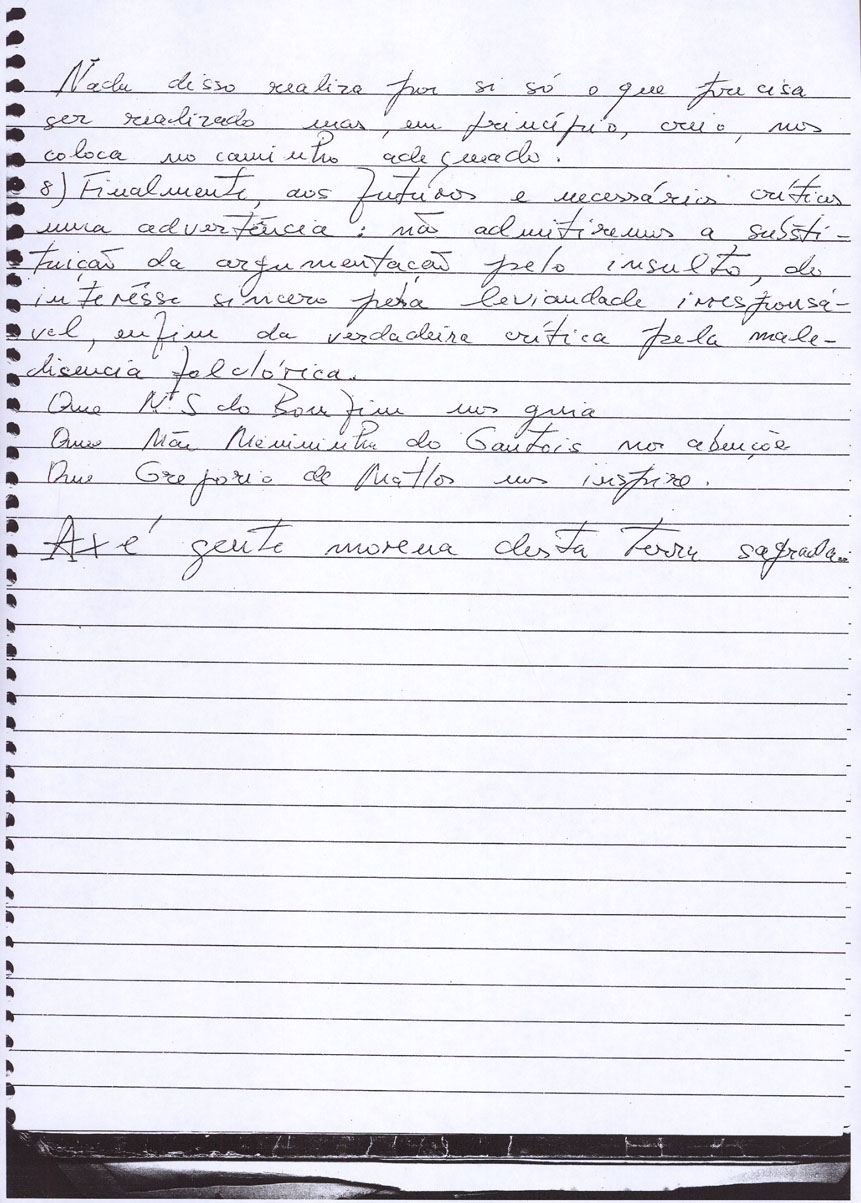 Nada disso realiza por si só o que precisa
ser realizado mas, em princípio, creio, nos
coloca no caminho adequado.
8) Finalmente, aos futuros e necessários críticos
uma advertência: não admitiremos a substi-
tuição da argumentação pelo insulto, do
interêsse sincero pela leviandade irresponsá-
vel, enfim da verdadeira crítica pela male-
disencia folclórica.
Que N. S do Bonfim nos guia
Que Mãe Menininha do Gantois nos abençõe
Que Gregorio de Mattos nos inspire.
Axé gente morena desta terra sagrada..